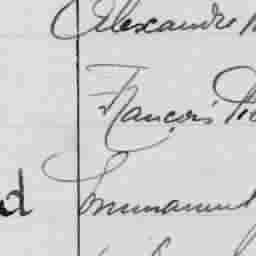 Alexandre
François
d Emmanuel